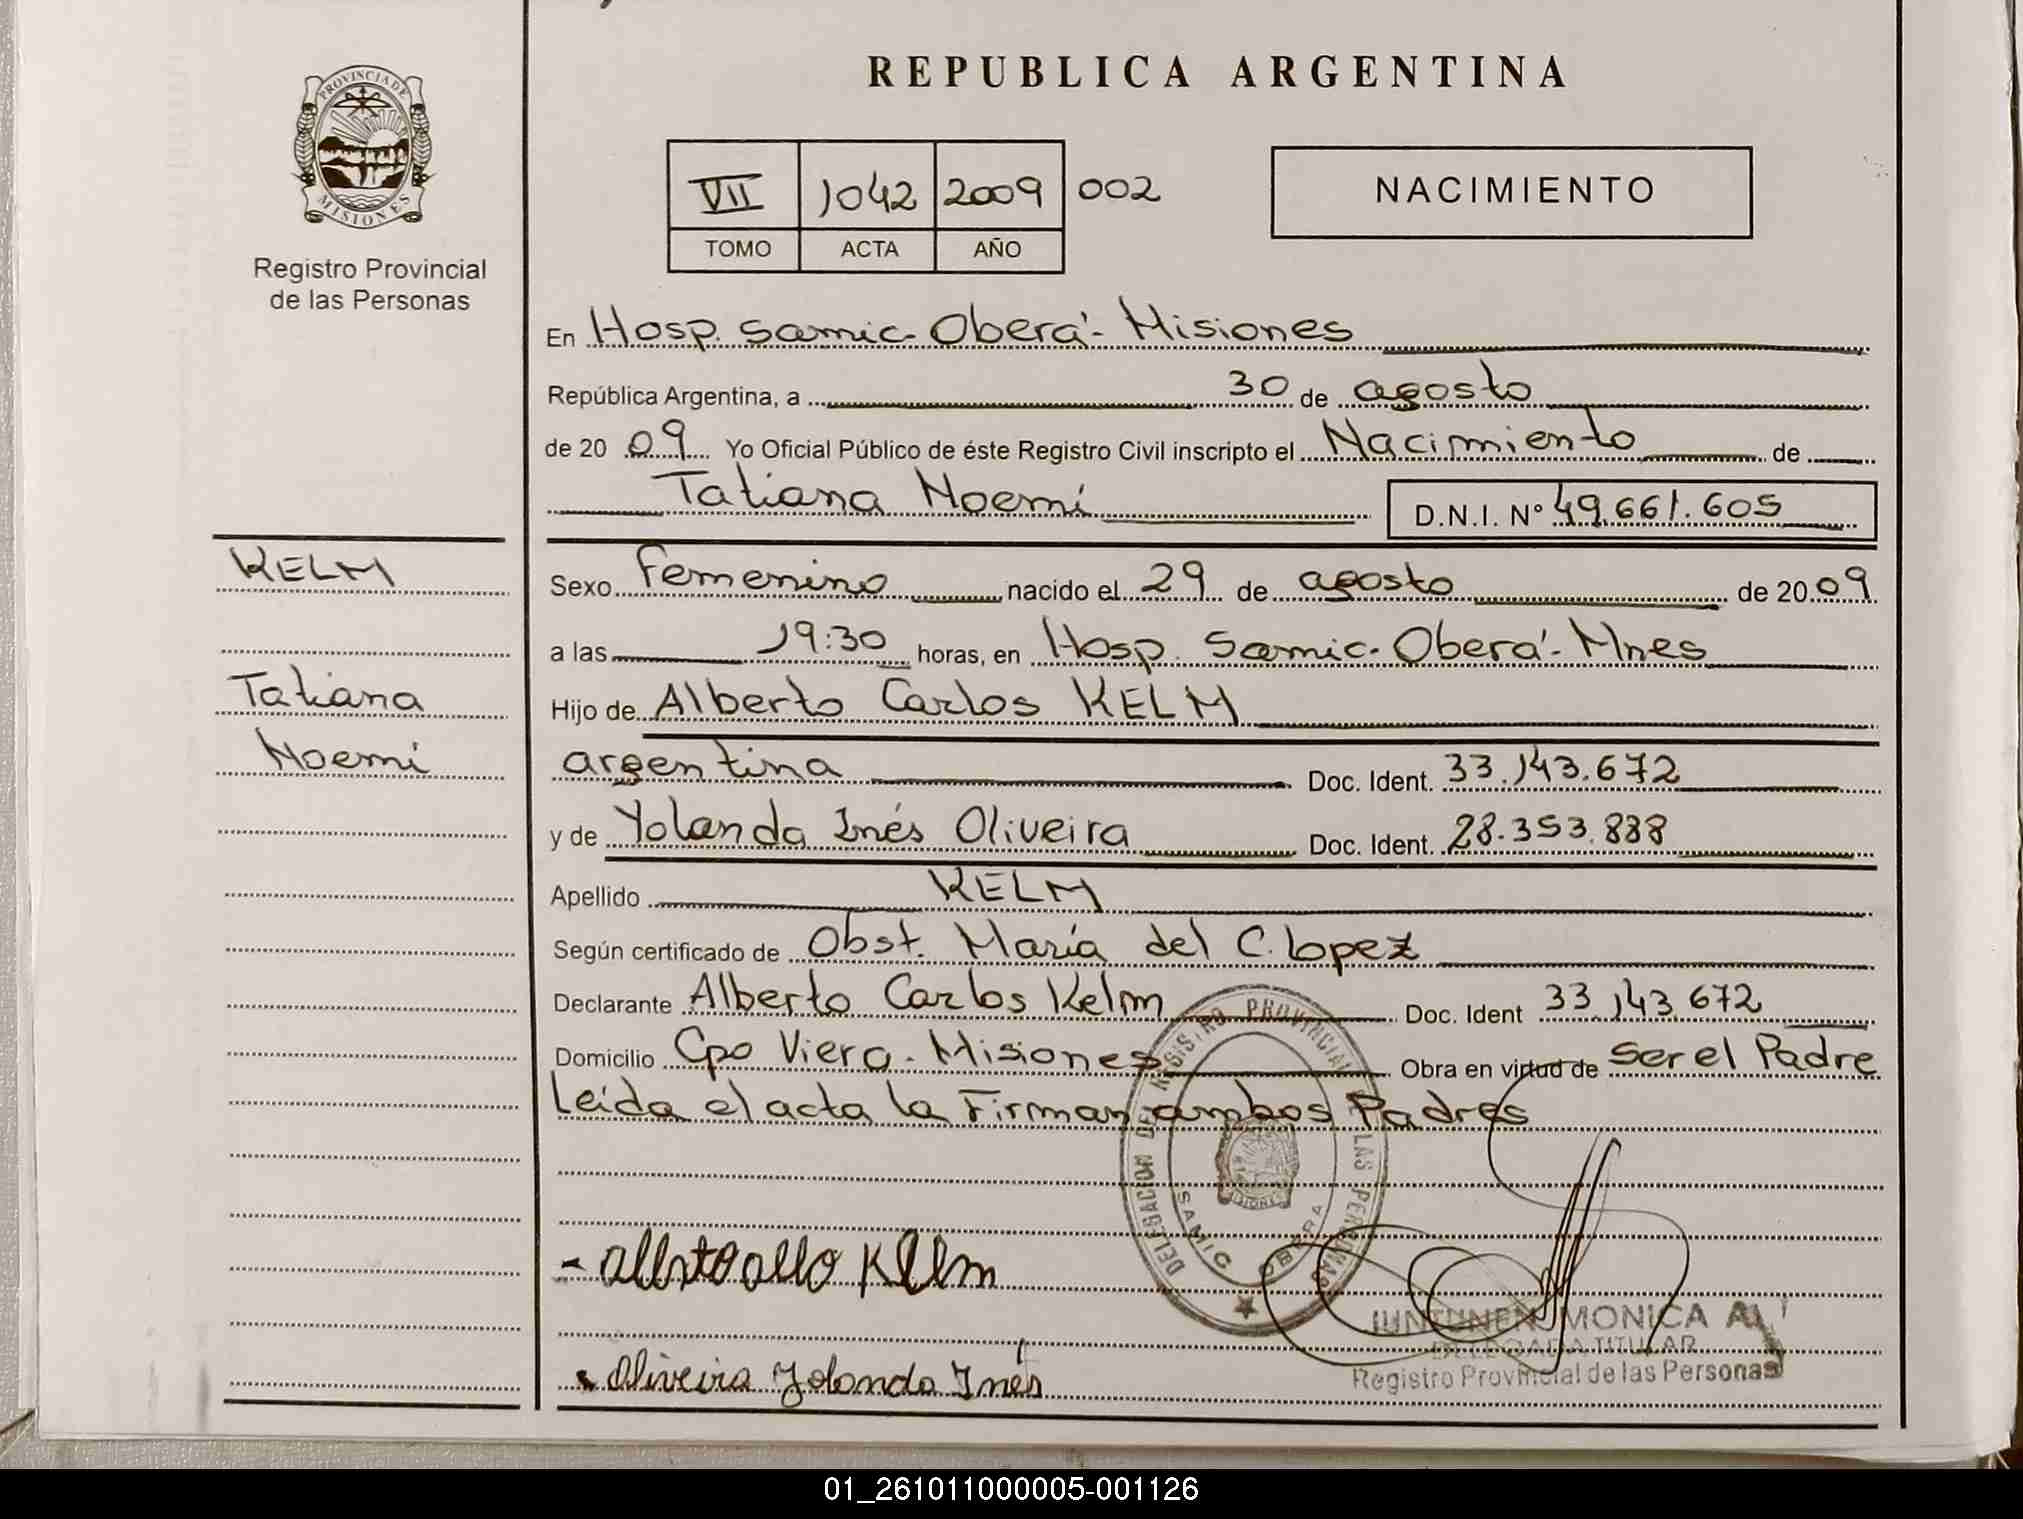 PROVINCIA DE
MISIONES
Registro Provincial
de las Personas
REPUBLICA ARGENTINA
VII 1042 2009 002
TOMO ACTA AÑO
NACIMIENTO
En Hosp. Samic- Oberá- Misiones
República Argentina, a 30 de agosto
de 20 09 Yo Oficial Público de éste Registro Civil inscripto el Nacimiento de
Tatiana Noemí D.N.I. N° 49.661.605
KELM
Tatiana
Noemí
Sexo Femenino nacido el 29 de agosto de 20 09
a las 19:30 horas, en Hosp. Samic- Oberá- Mnes
Hijo de Alberto Carlos KELM
argentina Doc. Ident. 33.143.672
y de Yolanda Inés Oliveira Doc. Ident. 28.353.888
Apellido KELM
Según certificado de Obst. María del C. Lopez
Declarante Alberto Carlos Kelm Doc. Ident 33.143.672
Domicilio Cpo Viera - Misiones Obra en virtud de ser el Padre
Leída el acta la Firman ambos Padres
DELEGACION DEL REGISTRO PROVINCIAL LAS PERSONAS
SAMIC OBERA
Kelm
Oliveira Yolanda Inés
MONICA
DELEGADA TITULAR
Registro Provincial de las Personas
01_261011000005-001126